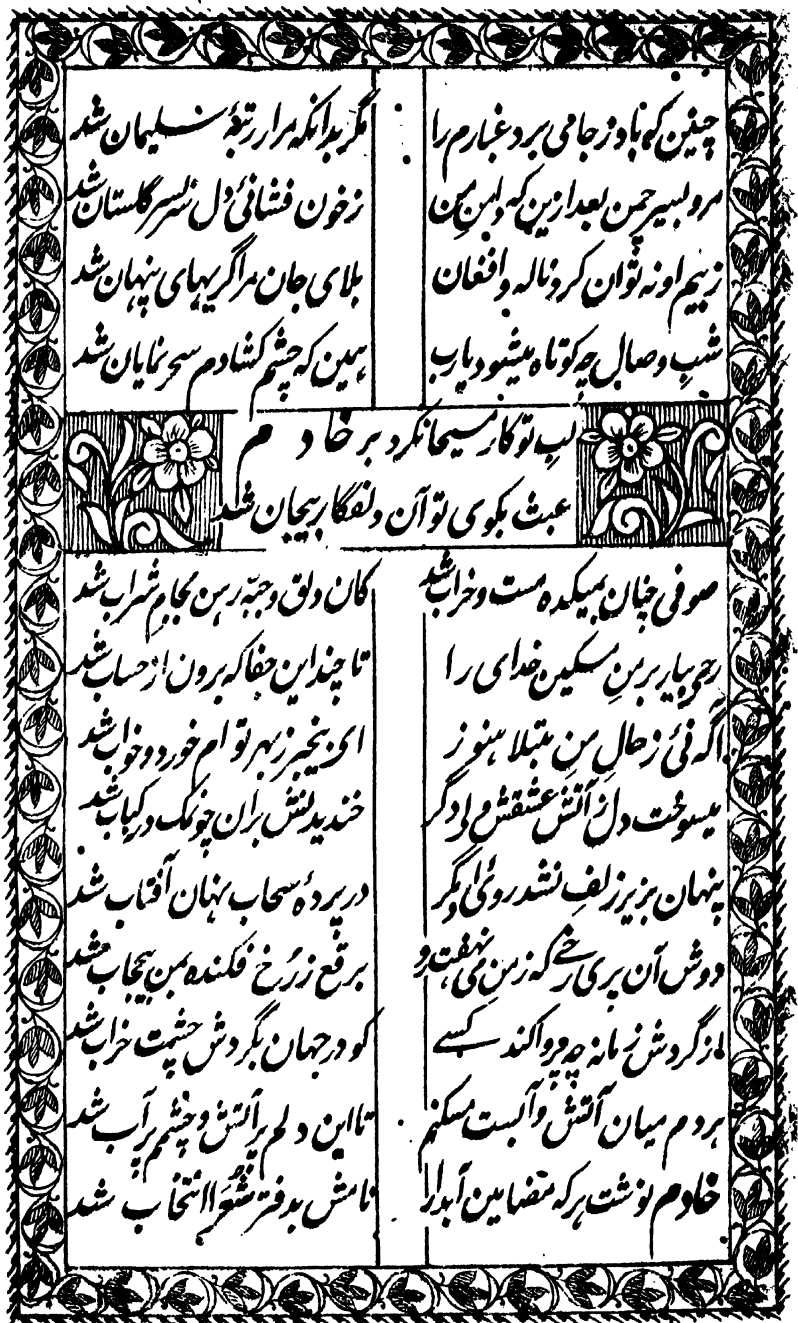 چنین که باد ز جا می برد غبارم را
مگر بدانکه مرا رتبهٔ سلیمان شد
مرو بسیر چمن بعد ازین که دلبن من
ز خون فشانیٔ دل سربسر گلستان شد
ز بیم او نه توان کرد ناله و افغان
بلای جان مرا گریهای پنهان شد
شب وصال چه کوتاه میشود یارب
همین که چشم کشادم سحر نمایان شد
لب تو کار مسیحا نکرد بر خادم
عبث بکوی تو آن دلفگار بیجان شد
صوفی چنان بمیکده مست و خراب شد
کان دلق و جبّه رهن بجام شراب شد
رحمی بیار بر من مسکین خدای را
تا چند این جفا که برون از حساب شد
آگه نیٔ ز حال من مبتلا هنوز
ای بیخبر ز بهر تو ام خورد و خواب شد
میسوخت دل ز آتش عشقش ولی دگر
خندیدنش بران چو نمک در کباب شد
پنهان بزیر زلف نشد روی او مگر
در پردهٔ سحاب نهان آفتاب شد
دوش آن پری رخی که ز من می نهفت رو
برقع ز رخ فکنده بمن بیحجاب شد
از گردش زمانه چه پروا کند کسے
کو در جهان بگردش چشمت خراب شد
هر دم میان آتش و آبست مسکنم
تا این دلم پر آتش و چشم پر آب شد
خادم نوشت هرکه مضامین آبدار
نامش بدفتر شعرا انتخاب شد